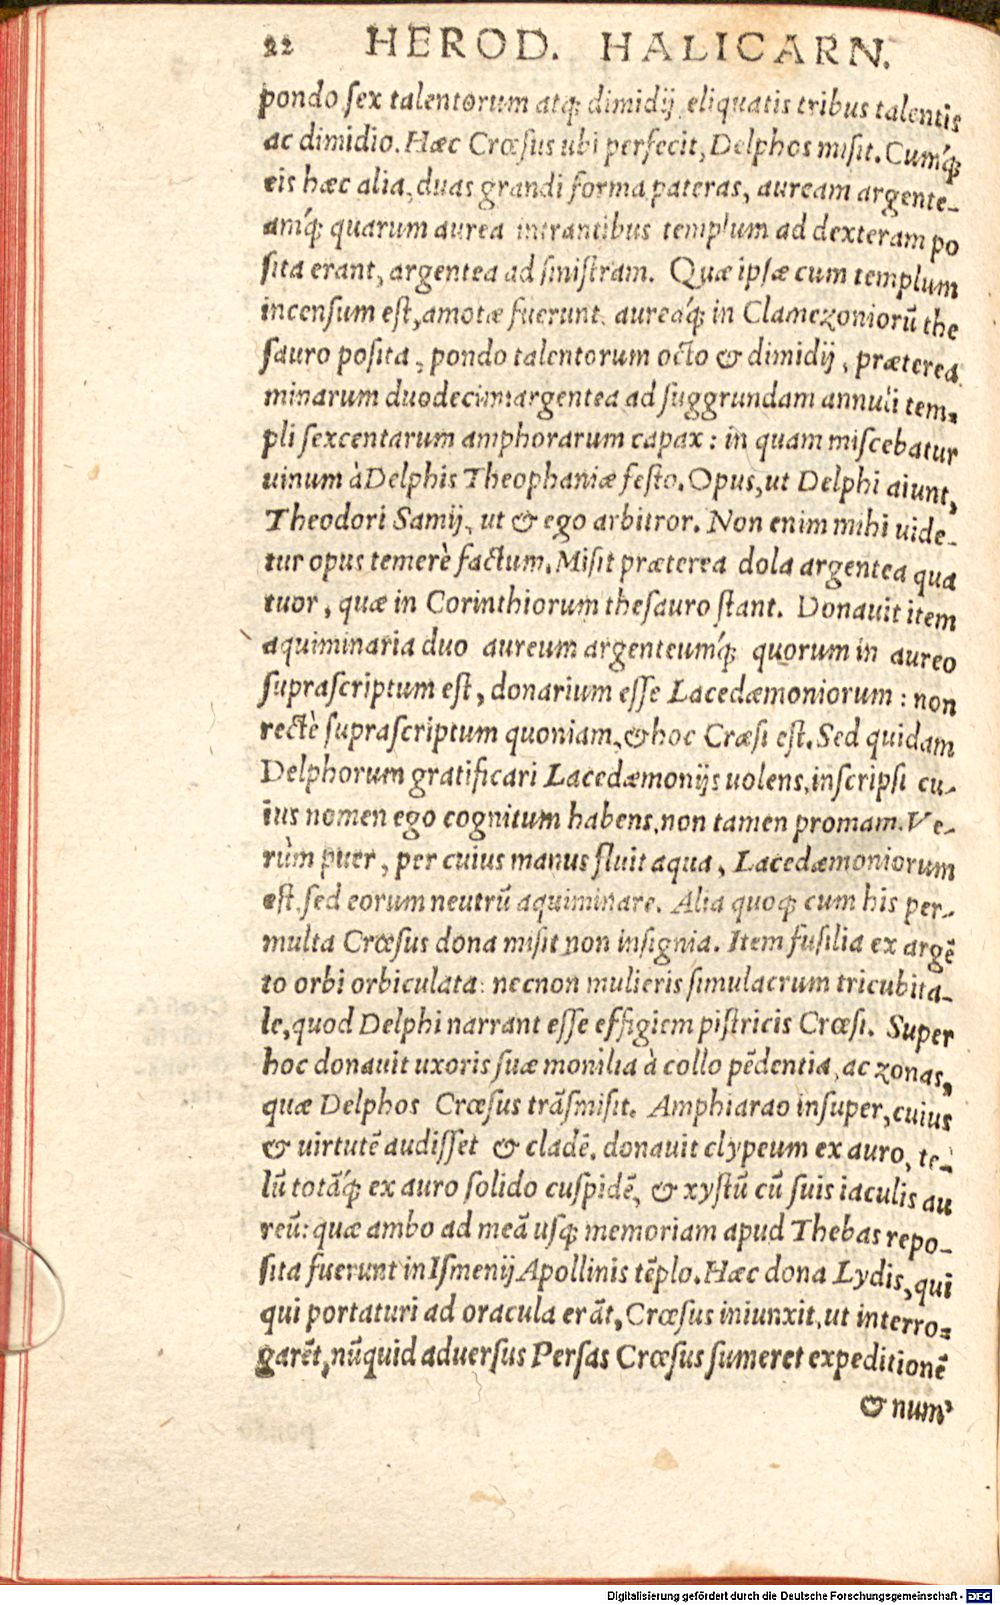 22 HEROD. HALICARN.
pondo ſex talentorum atq; dimidij eliquatis tribus talentis
ac dimidio. Hæc Crœſus ubi perfecit, Delphos miſit. Cumq́;
eis hæc alia, duas grandi forma pateras, auream argente-
amq́; quarum aurea intrantibus templum ad dexteram po
ſita erant, argentea ad ſiniſtram. Quæ ipſæ cum templum
incenſum eſt, amotæ fuerunt. aureáq́; in Clamezoniorū the
ſauro poſita, pondo talentorum octo & dimidij, præterea
minarum duodecim: argentea ad ſuggrundam annuli tem-
pli ſexcentarum amphorarum capax: in quam miſcebatur
uinum à Delphis Theophaniæ feſto. Opus, ut Delphi aiunt,
Theodori Samij, ut & ego arbitror. Non enim mihi uide-
tur opus temerè factum. Miſit præterea dola argentea qua
tuor, quæ in Corinthiorum theſauro ſtant. Donauit item
aquiminaria duo aureum argenteumq́; quorum in aureo
ſupraſcriptum eſt, donarium eſſe Lacedæmoniorum: non
rectè ſupraſcriptum quoniam, & hoc Cræſi eſt. Sed quidam
Delphorum gratificari Lacedæmonijs uolens, inſcripſi cu-
ius nomen ego cognitum habens, non tamen promam. Ve-
rùm puer, per cuius manus fluit aqua, Lacedæmoniorum
eſt. ſed eorum neutrū aquiminare. Alia quoq; cum his per-
multa Crœſus dona miſit non inſignia. Item fuſilia ex argē
to orbi orbiculata: necnon mulieris ſimulacrum tricubita-
le, quod Delphi narrant eſſe effigiem piſtricis Crœſi. Super
hoc donauit uxoris ſuæ monilia à collo pēdentia, ac zonas,
quæ Delphos Crœſus trāſmiſit. Amphiarao inſuper, cuius
& uirtutē audiſſet & cladē. donauit clypeum ex auro, te-
lū totāq́; ex auro ſolido cuſpidē, & xyſtū cū ſuis iaculis au
reū: quæ ambo ad meā uſq; memoriam apud Thebas repo-
ſita fuerunt in Iſmenij Apollinis tēplo. Hæc dona Lydis, qui
qui portaturi ad oracula erāt, Crœſus iniunxit, ut interro-
garēt, nūquid aduerſus Perſas Crœſus ſumeret expeditionē
& num
Digitalisierung gefördert durch die Deutsche Forschungsgemeinschaft - DFG